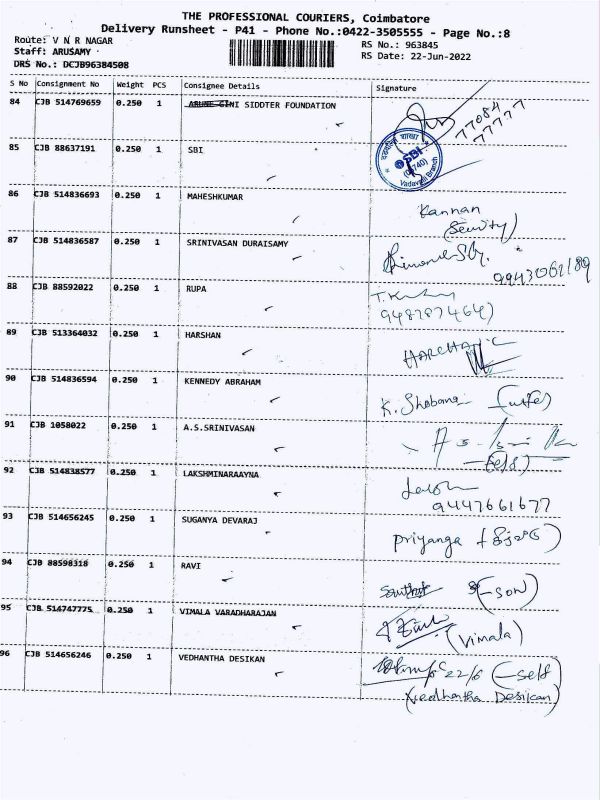 THE PROFESSIONAL COURIERS, Coimbatore
Delivery Runsheet - P41 - Phone No.:0422-3505555 - Page No.:8
Route: V N R NAGAR
Staff: ARUSAMY
DRS No.: DCJB96384508
RS No.: 963845
RS Date: 22-Jun-2022
S No Consignment No Weight PCS Consignee Details Signature
84 CJB 514769659 0.250 1 SIDDTER FOUNDATION
77084
77777
85 CJB 88637191 0.250 1 SBI
SBI
Vadavalli Branch
86 CJB 514836693 0.250 1 MAHESHKUMAR Kannan
(Security)
87 CJB 514836587 0.250 1 SRINIVASAN DURAISAMY
88 CJB 88592022 0.250 1 RUPA
89 CJB 513364032 0.250 1 HARSHAN
90 CJB 514836594 0.250 1 KENNEDY ABRAHAM K. Shobana (wife)
91 CJB 1058022 0.250 1 A.S.SRINIVASAN
(self)
92 CJB 514838577 0.250 1 LAKSHMINARAAYNA
9447661677
93 CJB 514656245 0.250 1 SUGANYA DEVARAJ Priyanga
94 CJB 88598318 0.250 1 RAVI (-SON)
95 CJB 514747775 0.250 1 VIMALA VARADHARAJAN (Vimala)
96 CJB 514656246 0.250 1 VEDHANTHA DESIKAN 22/6 (-self
(Vedhantha Desikan)